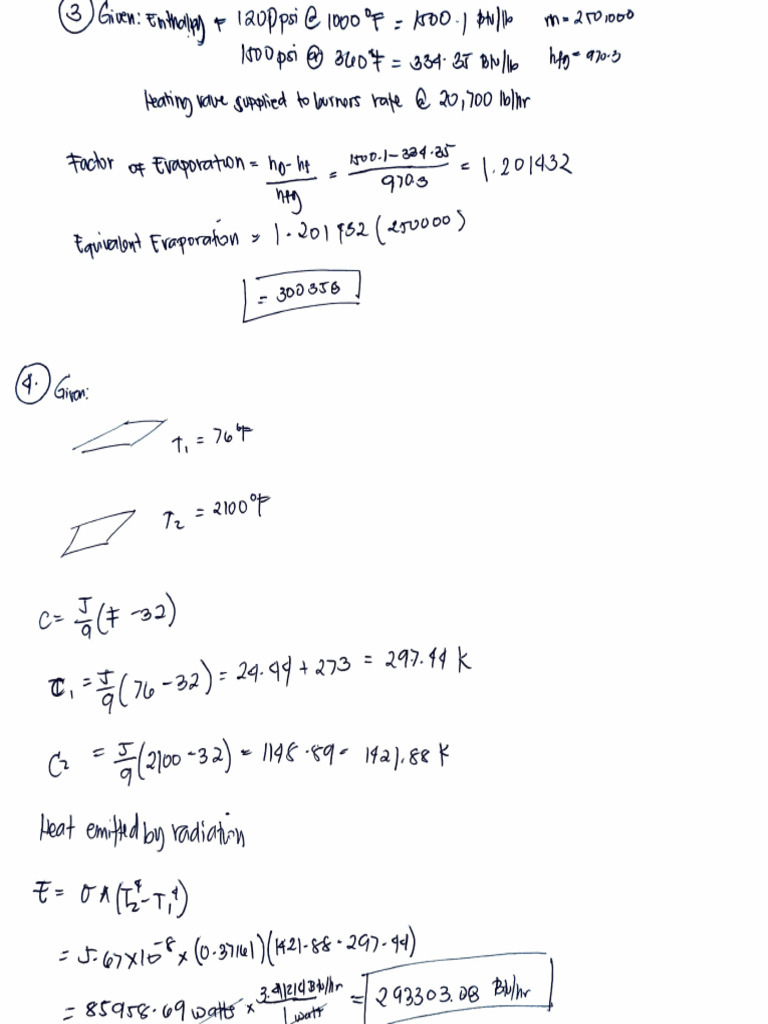 ③ Given: Enthalpy @ 1200psi @ 1000°F = 1500.1 Btu/lb m = 250,000
1500psi @ 360°F = 334.35 Btu/lb hfg = 970.3
Heating value supplied to burners rate @ 20,700 lb/hr
Factor of Evaporation = ho - hf / hfg = 1500.1 - 334.35 / 970.3 = 1.201432
Equivalent Evaporation = 1.201432 (250000)
= 300358
④. Given:
T₁ = 76°F
T₂ = 2100°F
C = 5/9 (F - 32)
C₁ = 5/9 (76 - 32) = 24.44 + 273 = 297.44 K
C₂ = 5/9 (2100 - 32) = 1148.89 = 1421.88 K
Heat emitted by radiation
E = σA (T₂⁴ - T₁⁴)
= 5.67 x 10⁻⁸ x (0.37161)(1421.88 - 297.44)
= 85958.69 watts x 3.41214 Btu/hr / 1 watt = 293303.08 Btu/hr